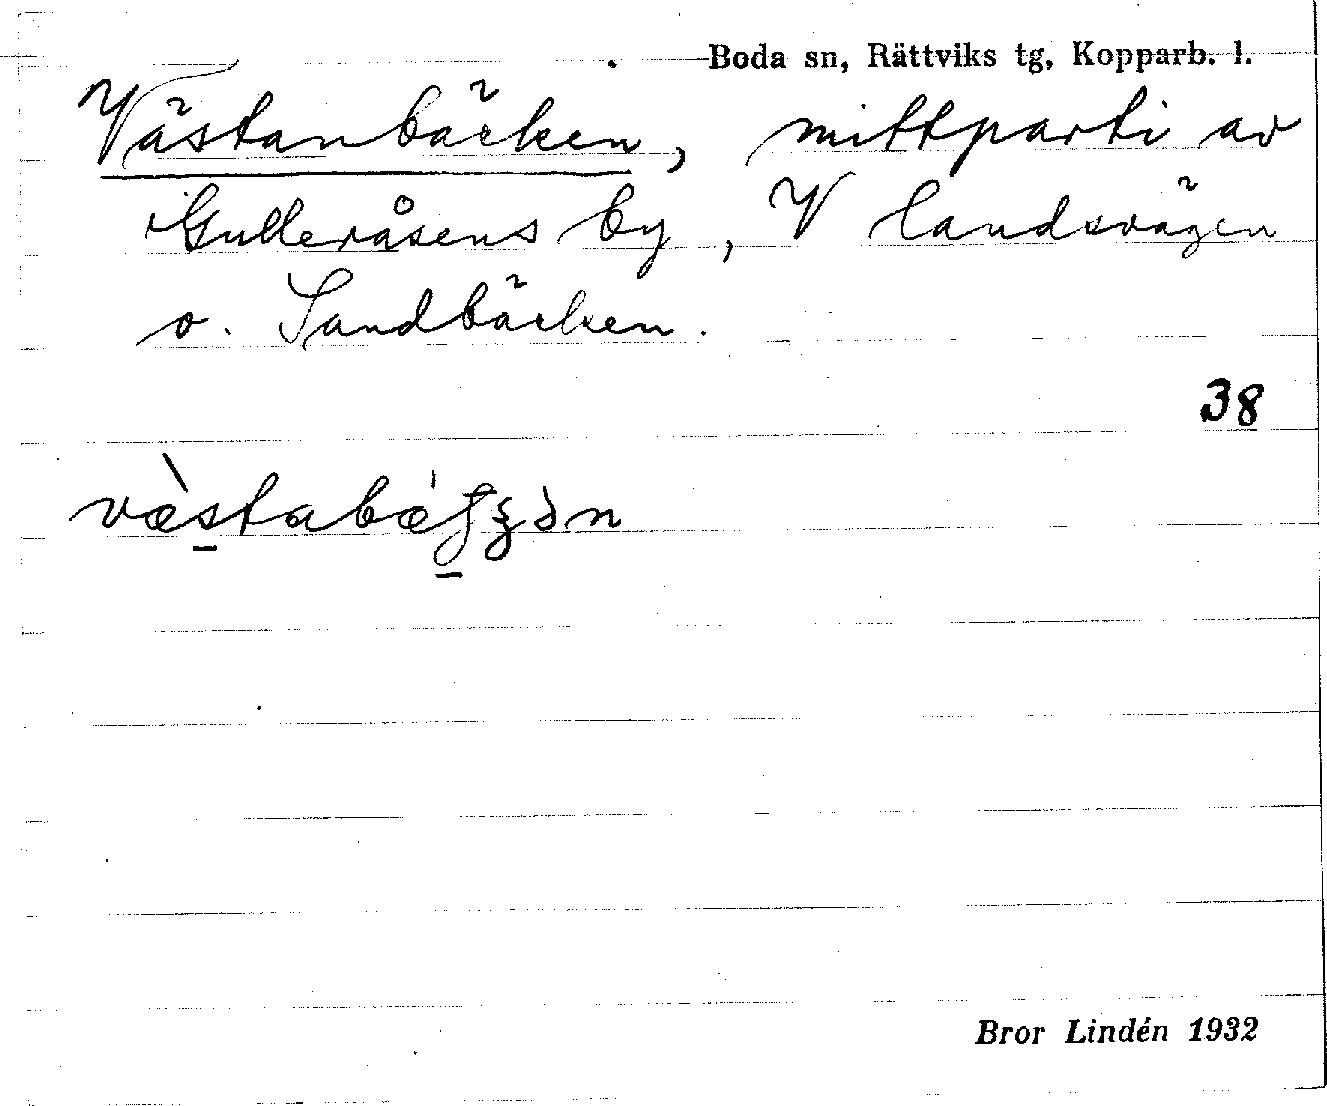 Boda sn, Rättviks tg, Kopparb. l.
Västanbäcken, mittparti av
Gulleråsens by, V landsvägen
o. Sandbäcken.
38
Bror Lindén 1932